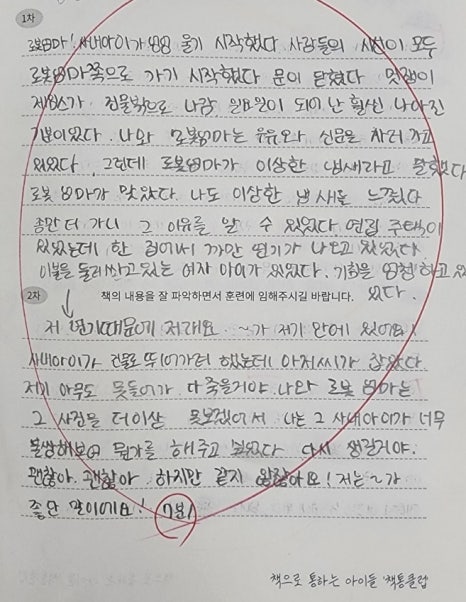 1차
로봇엄마! 사내아이가 엉엉 울기 시작했다 사람들의 시선이 모두
로봇엄마쪽으로 가기 시작했다 문이 닫혔다 멋쟁이
제임스가 전율적으로 나감 일요일이 되어 난 훨씬 나아진
기분이었다. 나와 로봇엄마는 우유와 신문을 사러 가고
있었다. 그런데 로봇엄마가 이상한 냄새라고 말했다
로봇 엄마가 맞았다. 나도 이상한 냄새를 느꼈다
좀만 더 가니 그 이유를 알 수 있었다 연립 주택이
있었는데 한 집에서 까만 연기가 나오고 있었다
이불을 둘러싸고 있는 여자 아이가 있었다. 기침을 엄청 하고 있
있다.
2차
책의 내용을 잘 파악하면서 훈련에 임해주시길 바랍니다.
저 연기때문에 저래요. ~가 저기 안에 있어요!
사내아이가 건물로 뛰어가려 했는데 아저씨가 잡았다
저기 아무도 못들어가 다 죽을거야. 나와 로봇 엄마는
그 사건을 더이상 못보겠어서 나는 그 사내아이가 너무
불쌍해보여 뭔가를 해주고 싶었다 다시 생길거야.
괜찮아. 괜찮아 하지만 같지 않잖아요! 저는 ~가
좋단 말이에요! 7분
책으로 통하는 아이들 책통클럽